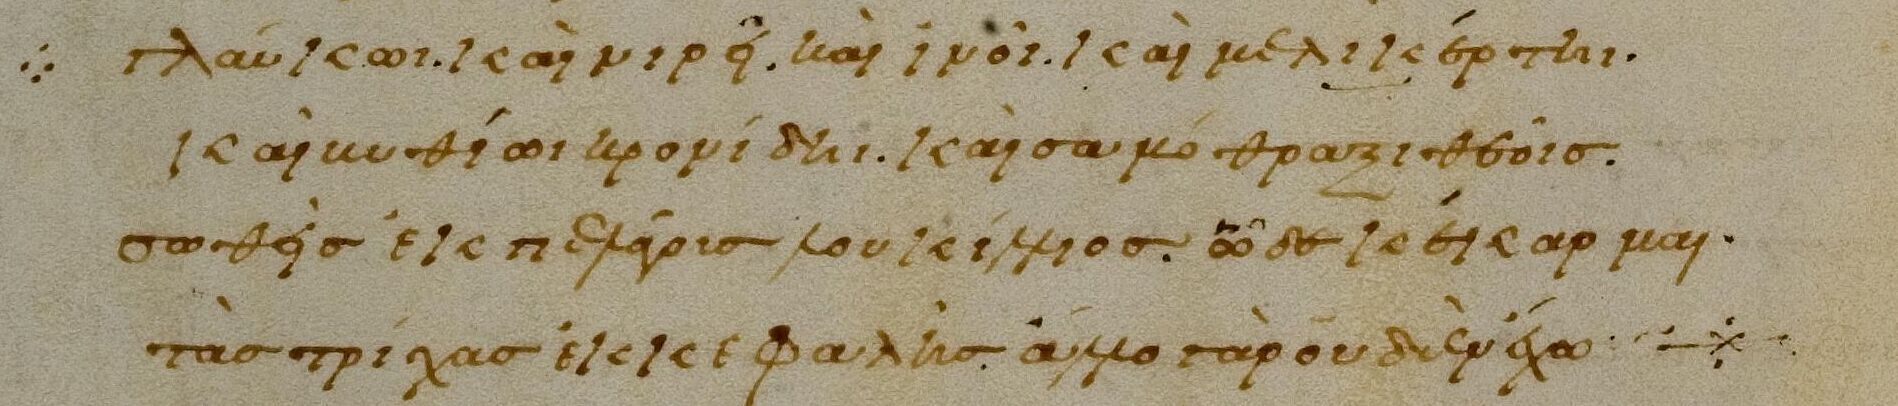 γλαύκωι. καὶ νιρῆ. καὶ ἰνοῖ. καὶ μελικέρτηι.
καὶ βυθίωι κρονίδηι. καὶ σαμόθραξι θεοῖσ.
σωθεὶσ ἐκ πελάγουσ λουκίλλιοσ. ὧδε κέκαρμαι.
τὰσ τρίχασ ἐκ κεφαλῆσ. ἄλλο γὰρ οὐδὲν ἔχω